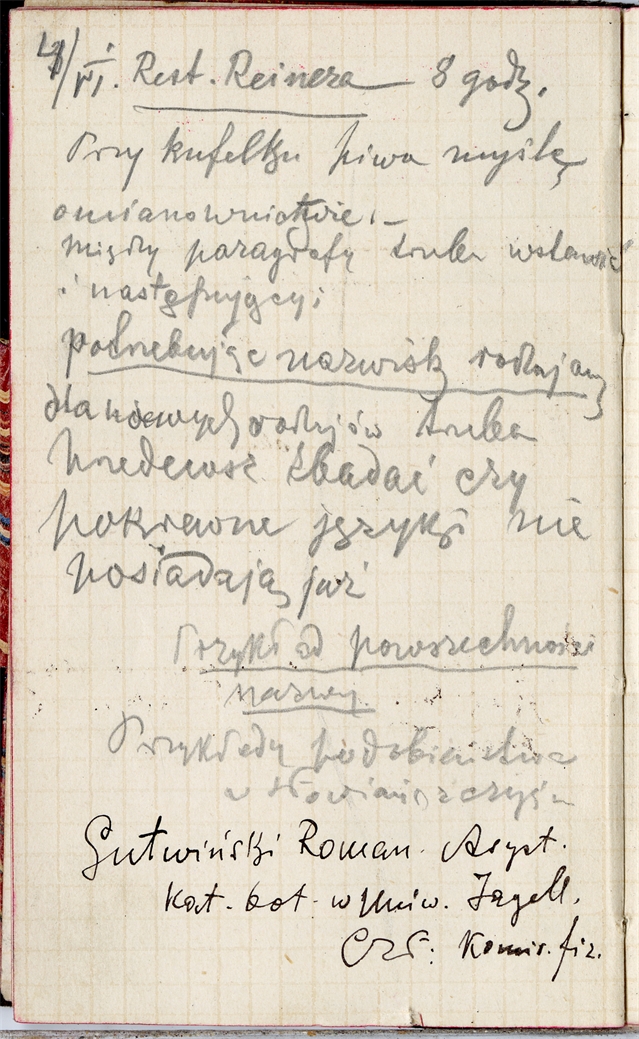 4/VI. Rest. Reinera 8 godz.
Przy kufelku piwa myślę
o mianownictwie. –
między paragrafy trzeba wstawić
i następujący:
potrzebując nazwiska rodzajow.
dla nowych rodzajów trzeba
przedewsz. zbadać czy
pokrewne języki nie
posiadają już
Przykład powszechności
nazwy
Przykłady podobieństwa
w słowiańszczyźn
Gutwiński Roman. Asyst.
Kat. bot. w Uniw. Jagell.
Czł. Komis. fiz.